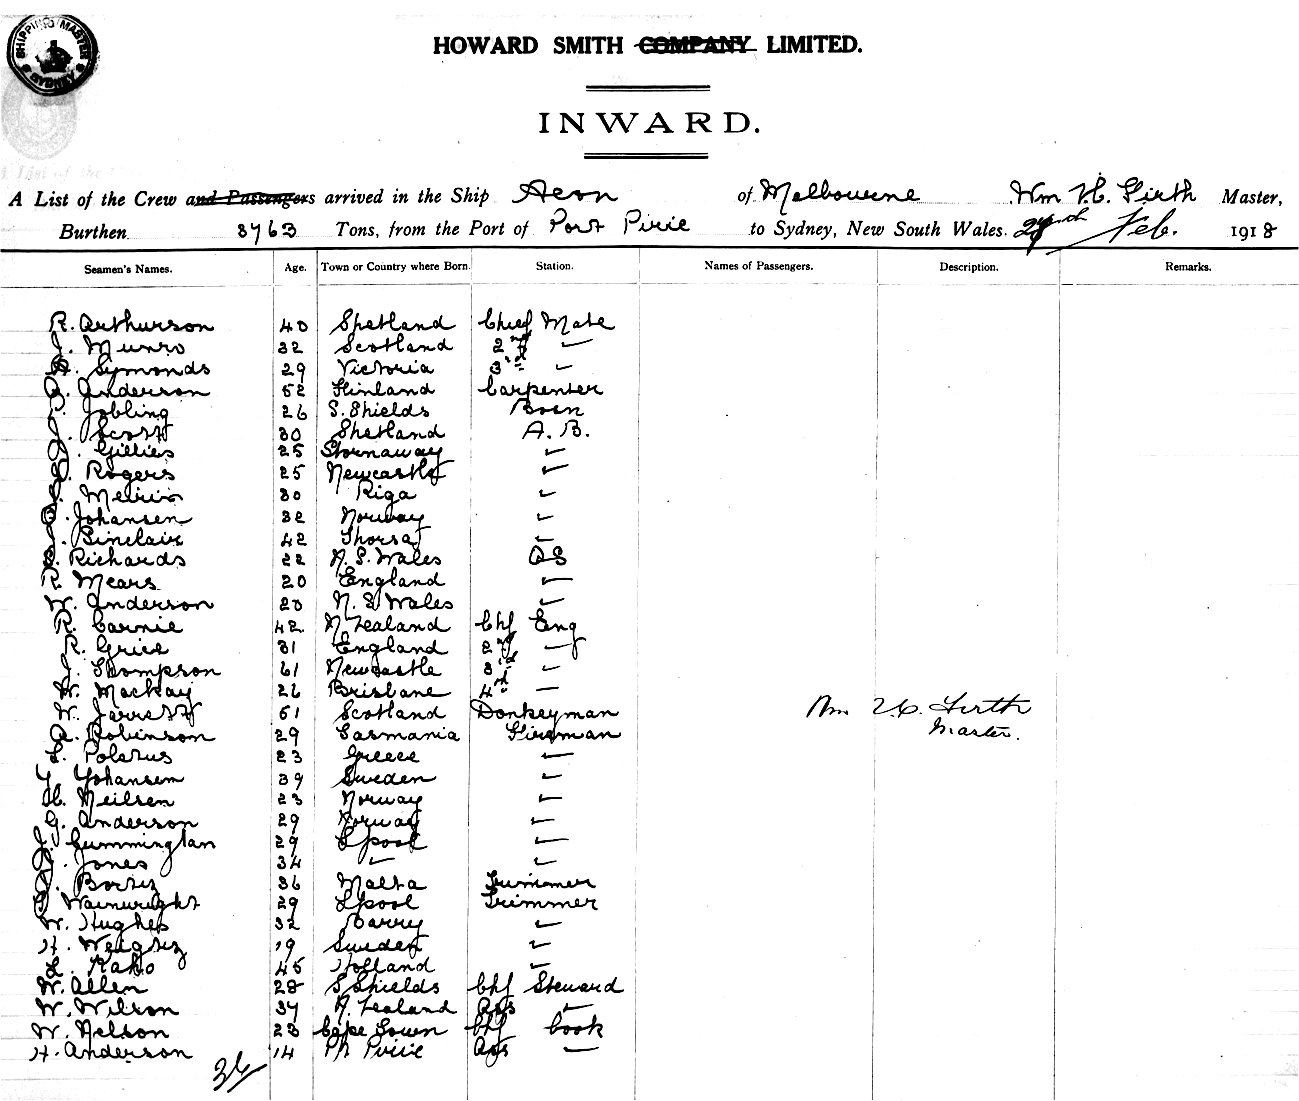 SHIPPING MASTER
SYDNEY
HOWARD SMITH COMPANY LIMITED.
INWARD.
A List of the Crew and Passengers arrived in the Ship Aeon of Melbourne Wm H. Firth Master,
Burthen 3763 Tons, from the Port of Port Pirie to Sydney, New South Wales. Feb. 1918
Seamen's Names. Age. Town or Country where Born. Station. Names of Passengers. Description. Remarks.
R. Arthurson 40 Shetland Chief Mate
J. Munro 32 Scotland 2nd "
Symonds 29 Victoria 3rd "
Anderson 52 Finland Carpenter
Jobling 26 S. Shields Bosn
J. Scott 30 Shetland A. B.
Gillies 25 Stornaway "
Rogers 25 Newcastle "
30 Riga "
Johansen 32 Norway "
Sinclair 42 Thorsa "
Richards 22 N. S. Wales OS
R. Mears 20 England "
W. Anderson 20 N. S Wales "
R. Carnie 42 N Zealand Chf Eng
R. Grice 31 England 2nd "
J. Thompson 61 Newcastle 3rd "
W. Mackay 26 Brisbane 4th "
W. Jarrett 51 Scotland Donkeyman Wm H. Firth
Master.
Robinson 29 Tasmania Fireman
23 Greece "
Y. Yohansen 39 Sweden "
Neilsen 23 Norway "
G. Anderson 29 Norway "
J. Cummington 29 Lpool "
Jones 34 " "
36 Malta Trimmer
Wainwright 29 Lpool Trimmer
W. Hughes 32 Barry "
H. 19 Sweden "
L. Kaho 45 Holland "
W. Allen 28 S Shields Chf Steward
W. Wilson 37 N. Zealand Ass "
W. Nelson 23 Cape Town Chf Cook
H. Anderson 14 Pt Pirie Ass "
36